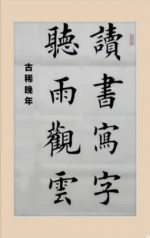 讀書寫字
聽雨觀雲
古稀晚年